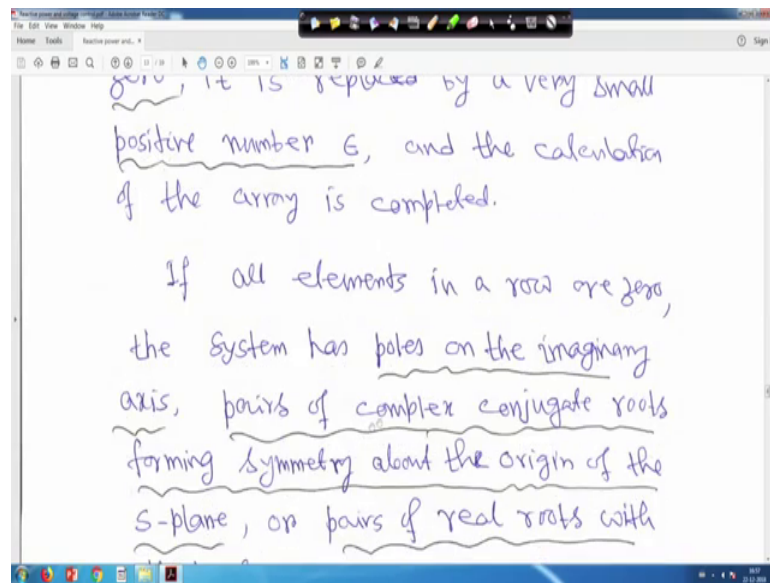 Reactive power and voltage control.pdf - Adobe Acrobat Reader DC
File Edit View Window Help
Home Tools Reactive power and... × Sign
zero, it is replaced by a very small
positive number ϵ, and the calculation
of the array is completed.
If all elements in a row are zero,
the system has poles on the imaginary
axis, pairs of complex conjugate roots
forming symmetry about the origin of the
s-plane, or pairs of real roots with